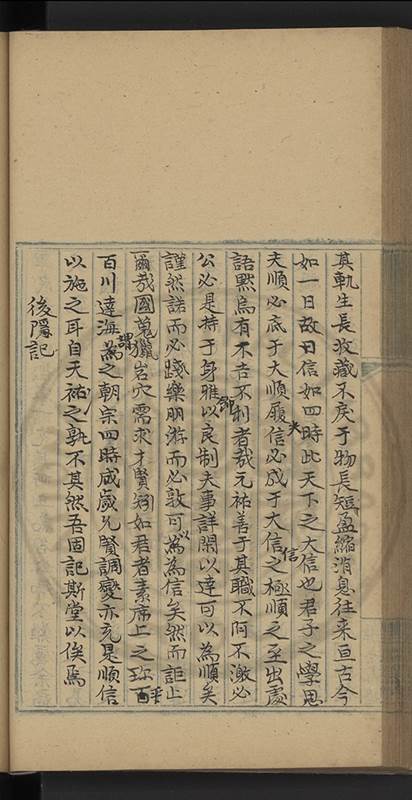 其軌生長收藏不戾于物長短盈縮消息往来亘古今
如一日故曰信如四時此天下之大信也君子之學思
夫順必底于大順履信必成于大信之極順之至出處
夫
信
語默烏有不吉不利者哉元祐善于其職不阿不激必
公必是持于身雅以良制夫事詳閑以達可以為順矣
即
謹然諾而必踐樂朋游而必敦可為為信矣然而詎止
以
爾哉國蒐獵岩穴需求才賢矧如君者素席上之珎
乎
百川達海為之朝宗四時成歲兄賢調燮亦充是順信
謂
以施之耳自天祐之孰不其然吾固記斯堂以俟焉
後隱記